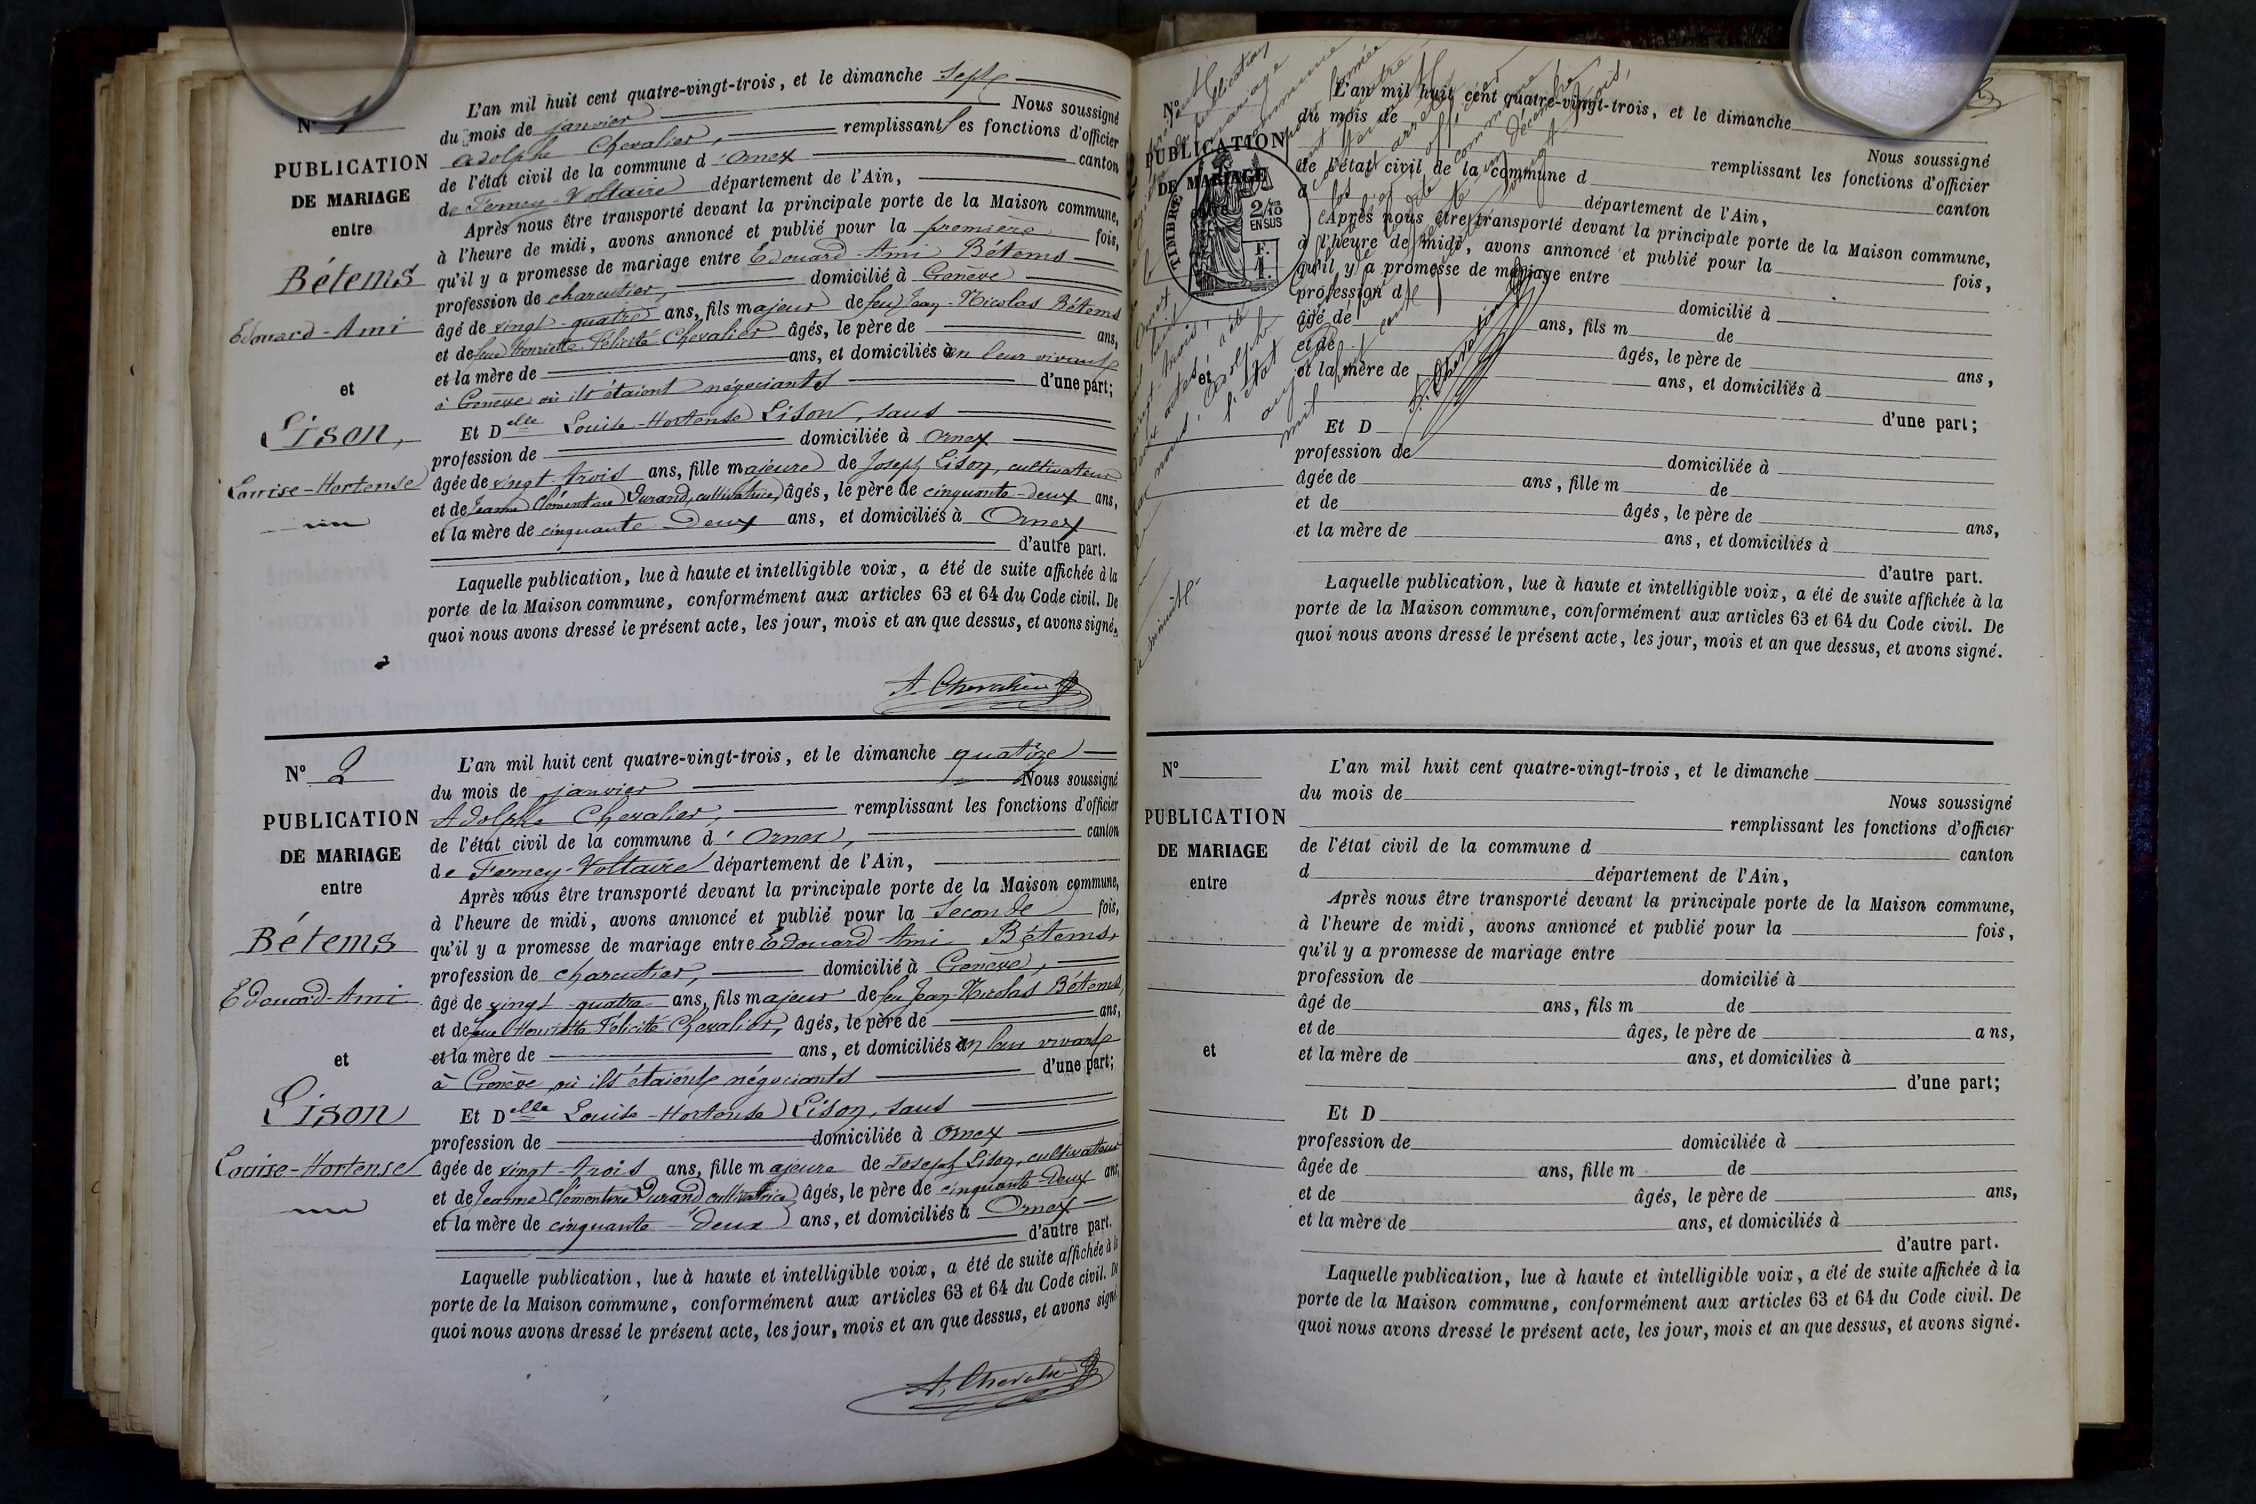 L'an mil huit cent quatre-vingt-trois, et le dimanche sept
N° 1
du mois de janvier Nous soussigné
PUBLICATION
Adolphe Chevalier, remplissant les fonctions d'officier
DE MARIAGE
de l'état civil de la commune d'Ornex canton
entre
de Ferney-Voltaire département de l'Ain,
Après nous être transporté devant la principale porte de la Maison commune,
à l'heure de midi, avons annoncé et publié pour la première fois,
Bétems
qu'il y a promesse de mariage entre Edouard-Ami Bétems
profession de charcutier, domicilié à Genève
Edouard-Ami
âgé de vingt-quatre ans, fils majeur de feu Jean-Nicolas Bétems
et de feue Henriette Félicité Chevalier âgés, le père de ans,
et la mère de ans, et domiciliés à en leur vivant
et
à Genève où ils étaient négociants d'une part;
Lison,
Et Delle Louise-Hortense Lison, sans
profession de domiciliée à Ornex
Louise-Hortense
âgée de vingt-trois ans, fille majeure de Joseph Lison, cultivateur
et de Jeanne Clémentine Durand, cultivatrice, âgés, le père de cinquante-deux ans,
et la mère de cinquante deux ans, et domiciliés à Ornex
d'autre part.
Laquelle publication, lue à haute et intelligible voix, a été de suite affichée à la
porte de la Maison commune, conformément aux articles 63 et 64 du Code civil. De
quoi nous avons dressé le présent acte, les jour, mois et an que dessus, et avons signé.
A. Chevalier
L'an mil huit cent quatre-vingt-trois, et le dimanche quatorze
N° 2
du mois de janvier Nous soussigné
PUBLICATION
Adolphe Chevalier, remplissant les fonctions d'officier
DE MARIAGE
de l'état civil de la commune d'Ornex, canton
entre
de Ferney-Voltaire département de l'Ain,
Après nous être transporté devant la principale porte de la Maison commune,
à l'heure de midi, avons annoncé et publié pour la seconde fois,
Bétems
qu'il y a promesse de mariage entre Edouard-Ami Bétems,
profession de charcutier, domicilié à Genève,
Edouard-Ami
âgé de vingt-quatre ans, fils majeur de feu Jean-Nicolas Bétems,
et de feue Henriette Félicité Chevalier, âgés, le père de ans,
et
et la mère de ans, et domiciliés à en leur vivant
à Genève où ils étaient négociants d'une part;
Lison
Et Delle Louise-Hortense Lison, sans
profession de domiciliée à Ornex
Louise-Hortense
âgée de vingt-trois ans, fille majeure de Joseph Lison, cultivateur
et de Jeanne Clémentine Durand cultivatrice, âgés, le père de cinquante-deux ans,
et la mère de cinquante-deux ans, et domiciliés à Ornex
d'autre part.
Laquelle publication, lue à haute et intelligible voix, a été de suite affichée à la
porte de la Maison commune, conformément aux articles 63 et 64 du Code civil. De
quoi nous avons dressé le présent acte, les jour, mois et an que dessus, et avons signé.
A. Chevalier
N°
L'an mil huit cent quatre-vingt-trois, et le dimanche
du mois de
Nous soussigné
PUBLICATION
remplissant les fonctions d'officier
DE MARIAGE
de l'état civil de la commune d
canton
d département de l'Ain,
TIMBRE
2/10
EN SUS
F.
1.
Après nous être transporté devant la principale porte de la Maison commune,
à l'heure de midi, avons annoncé et publié pour la fois,
qu'il y a promesse de mariage entre
profession de domicilié à
âgé de ans, fils m de
et de âgés, le père de ans,
et
et la mère de ans, et domiciliés à
d'une part;
A. Chevalier
Et D
profession de domiciliée à
âgée de ans, fille m de
et de âgés, le père de ans,
et la mère de ans, et domiciliés à
d'autre part.
Laquelle publication, lue à haute et intelligible voix, a été de suite affichée à la
porte de la Maison commune, conformément aux articles 63 et 64 du Code civil. De
quoi nous avons dressé le présent acte, les jour, mois et an que dessus, et avons signé.
N°
L'an mil huit cent quatre-vingt-trois, et le dimanche
du mois de
Nous soussigné
PUBLICATION
remplissant les fonctions d'officier
DE MARIAGE
de l'état civil de la commune d
canton
entre
d département de l'Ain,
Après nous être transporté devant la principale porte de la Maison commune,
à l'heure de midi, avons annoncé et publié pour la fois,
qu'il y a promesse de mariage entre
profession de domicilié à
âgé de ans, fils m de
et de âges, le père de ans,
et
et la mère de ans, et domicilies à
d'une part;
Et D
profession de domiciliée à
âgée de ans, fille m de
et de âgés, le père de ans,
et la mère de ans, et domiciliés à
d'autre part.
Laquelle publication, lue à haute et intelligible voix, a été de suite affichée à la
porte de la Maison commune, conformément aux articles 63 et 64 du Code civil. De
quoi nous avons dressé le présent acte, les jour, mois et an que dessus, et avons signé.